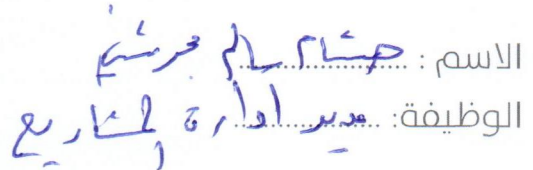 الاسم : هشام سالم
الوظيفة: مدير ادارة المشاريع